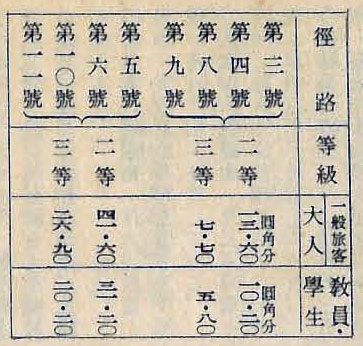 徑路
等級
一般旅客
大人
教員・
學生
第三號
第四號
第八號
第九號
二等
圓角分
一三・六〇
圓角分
一〇・二〇
三等
七・七〇
五・八〇
第五號
第六號
第一〇號
第一一號
二等
四一・六〇
三一・二〇
三等
二六・九〇
二〇・二〇